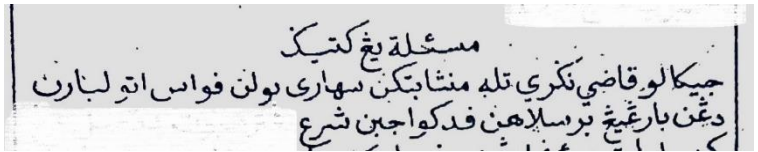 مسئلة يڠ كتيݢ
جيكالو قاضي نݢري تله منثابتكن سهاري بولن ڤواس اتو لبارن
دڠن بارڠيڠ برسلاهن ڤد كواجبن شرع